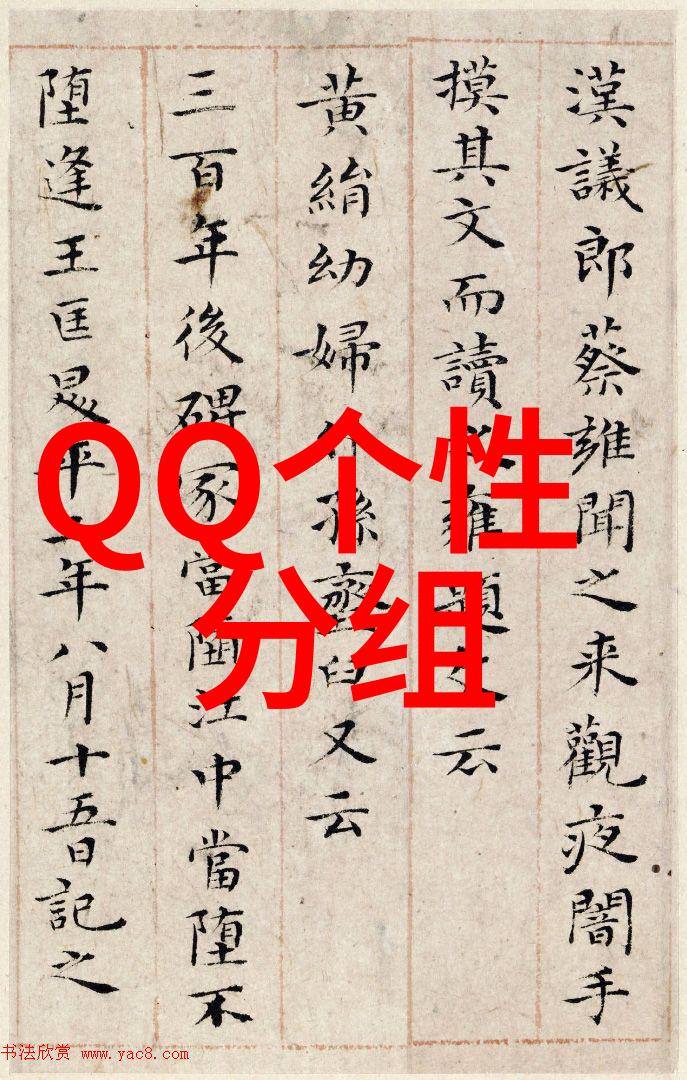 漢議郎蔡雍聞之来觀夜闇手
摸其文而讀雍題文云
黃絹幼婦孫臼又云
三百年後碑冢當江中當堕不
堕逢王匡昇平二年八月十五日記之
QQ个性
分组
书法欣赏 www.yac8.com